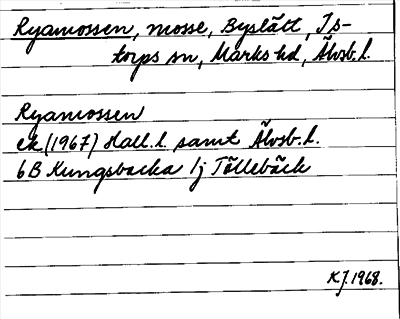 Ryamossen, mosse, Byslätt, Is-
torps sn, Marks hd, Älvsb. l.
Ryamossen
ek (1967) Hall. l. samt Älvsb. l.
6B Kungsbacka 1j Töllebäck
KJ. 1968.